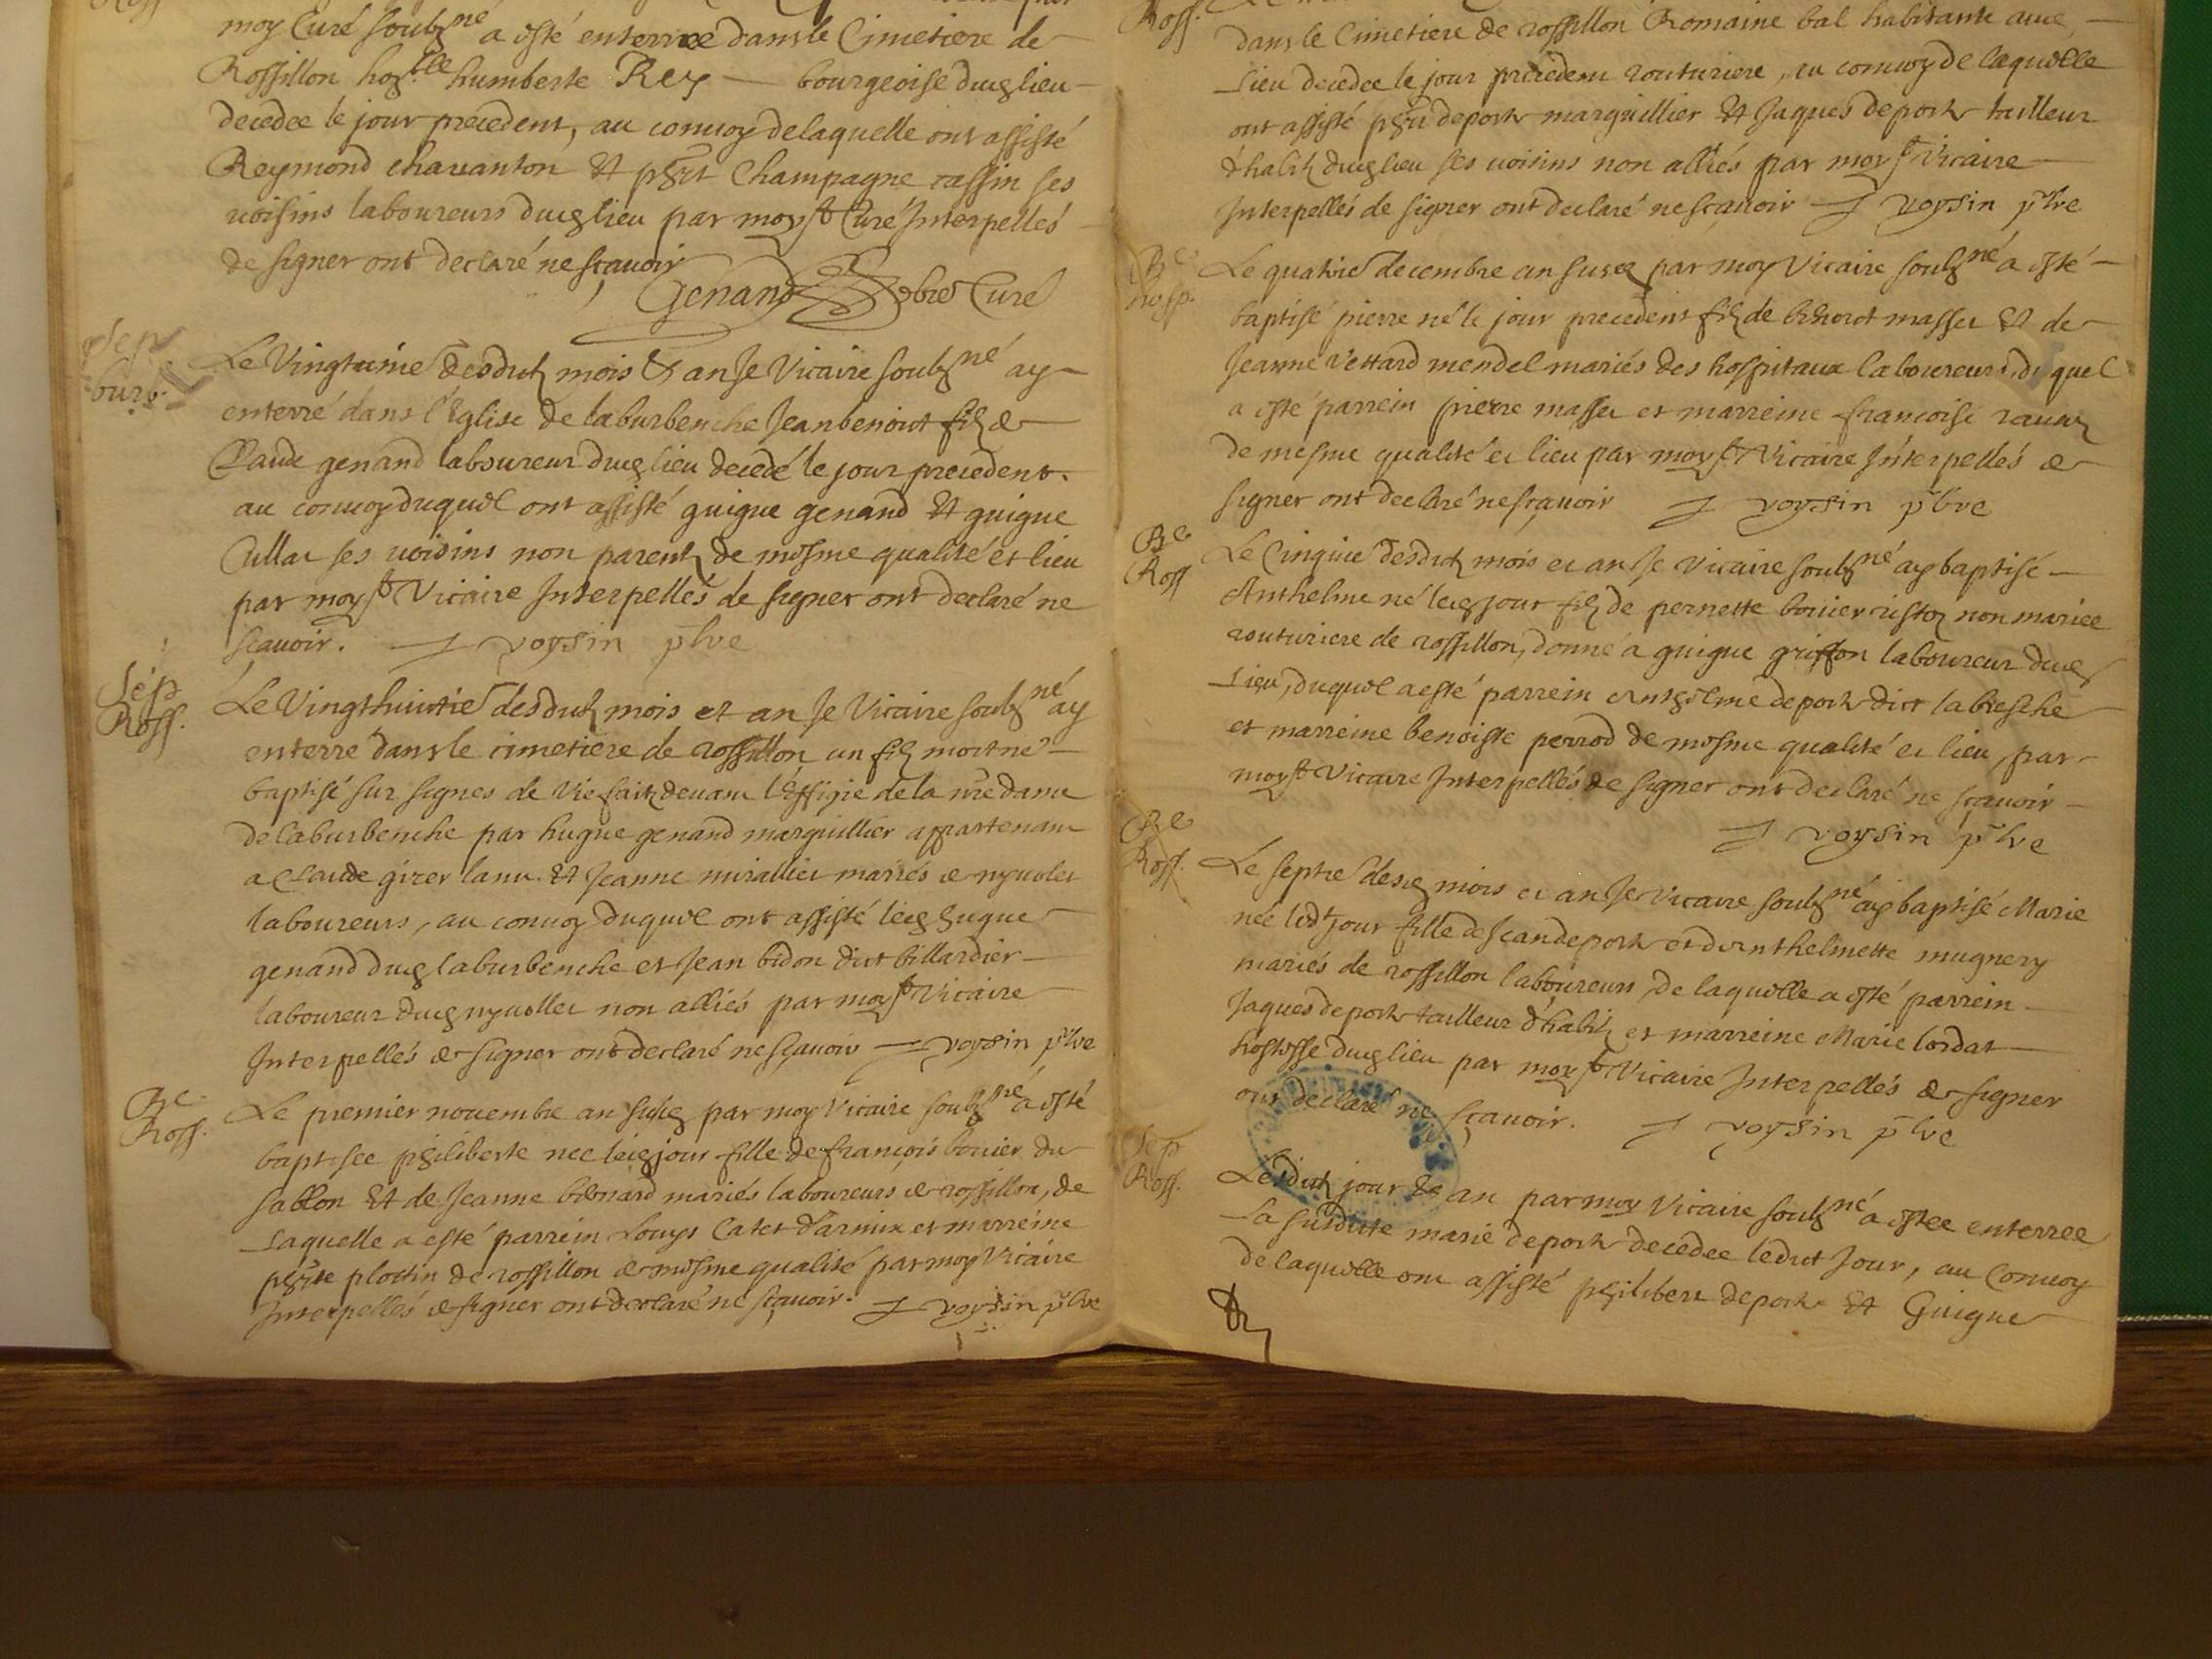 Roff
moy Curé soubzné a esté enterrée dans le Cimetiere de
Rossillon hoz.lle humberte Rey — bourgeoise dudz lieu
decedée le jour precedent, au conuoy de laquelle ont assisté
Reymond chauanton et Champagne cassin ses
uoisins laboureurs dudz lieu par moy st Curé Interpellés
de signer ont declaré ne sçauoir
Genand pbre Curé
Sep
burb.
Le Vingtunie desditz mois & an Je Vicaire soubzné ay
enterré dans l'Eglise de laburbenche Jean benoict filz de
Claude genand laboureur dudz lieu decedé le jour precedent.
au conuoy duquel ont assisté guigue genand et guigue
Cullat ses uoisins non parentz de mesme qualité et lieu
par moy st Vicaire Interpellés de signer ont declaré ne
scauoir. voysin pbre
Sep
Roff.
Le Vingthuictie desditz mois et an Je Vicaire soubzné ay
enterré dans le cimetiere de rossillon un filz mortné
baptisé sur signes de Vie faitz deuant l'Effigie de la nre dame
de laburbenche par hugue genand marguillier appartenant
a Claude girer et Jeanne mirallier mariés de
laboureurs, au conuoy duquel ont assisté ledz hugue
genand dudz laburbenche et Jean bidon dict billardier
laboureur dudz non alliés par moy st Vicaire
Interpellés de signer ont declaré ne sçauoir voysin pbre
Be
Roff.
Le premier nouembre an susdz par moy Vicaire soubzné a esté
baptisée philiberte née ledz jour fille de françois bouier du
sablon et de Jeanne mariés laboureurs de rossillon, de
Laquelle a esté parrein Louys Catet d'arnix et marreine
plottin de rossillon de mesme qualité par moy Vicaire
Interpellés de signer ont declaré ne sçauoir. voysin pbre
Roff.
dans le Cimetiere de rossillon Romaine bal habitante aud
Lieu decedée le jour precedent couturiere, au conuoy de laquelle
ont assisté deporte marguillier et Jaques deporte tailleur
d'habitz dudz lieu ses uoisins non alliés par moy st Vicaire
Interpellés de signer ont declaré ne sçauoir voysin pbre
Be
Rosp.
Le quatrie decembre an susdz par moy Vicaire soubzné a esté
baptisé pierre né le jour precedent filz de benoict masse et de
Jeanne Vettard mendel mariés des hospitaux laboureurs, duquel
a esté parrein pierre masse et marreine francoise rauaz
de mesme qualité et lieu par moy st Vicaire Interpellés de
signer ont declaré ne sçauoir voysin pbre
Be
Roff
Le Cinquie desditz mois et an Je Vicaire soubzné ay baptisé
Anthelme né ledz jour filz de pernette bouier non mariée
couturiere de rossillon, donné a guigue griffon laboureur dudz
Lieu, duquel a esté parrein Anthelme deporte dict
et marreine benoiste perrod de mesme qualité et lieu, par
moy st Vicaire Interpellés de signer ont declaré ne sçauoir
voysin pbre
Be
Roff.
Le septie desdz mois et an Je Vicaire soubzné ay baptisé Marie
née ledt jour fille de Jean deporte et d'anthelmette mugnery
mariés de rossillon laboureurs, de laquelle a esté parrein
Jaques deporte tailleur d'habitz et marreine Marie lordat
hostesse dudz lieu par moy st Vicaire Interpellés de signer
ont declaré ne sçauoir. voysin pbre
Sep
Roff.
Lesditz jour & an par moy Vicaire soubzné a estee enterrée
La susdite marie deporte decedée ledict Jour, au Conuoy
de laquelle ont assisté philibert deporte et Guigue